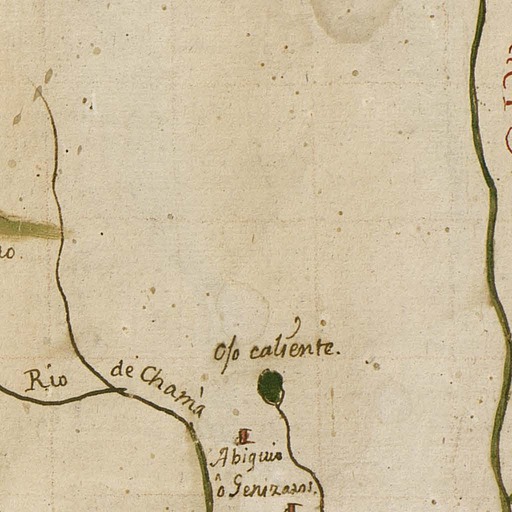 Ojo caliente.
Rio de Chamà
Abiquiu
ô Genizaros.